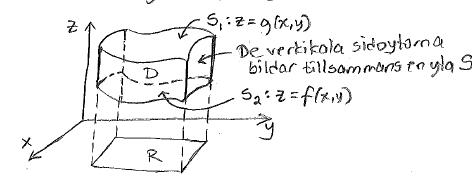 z
S₁: z = g(x,y)
De vertikala sidoytorna
bildar tillsammans en yta S
D
S₂: z = f(x,y)
x
y
R